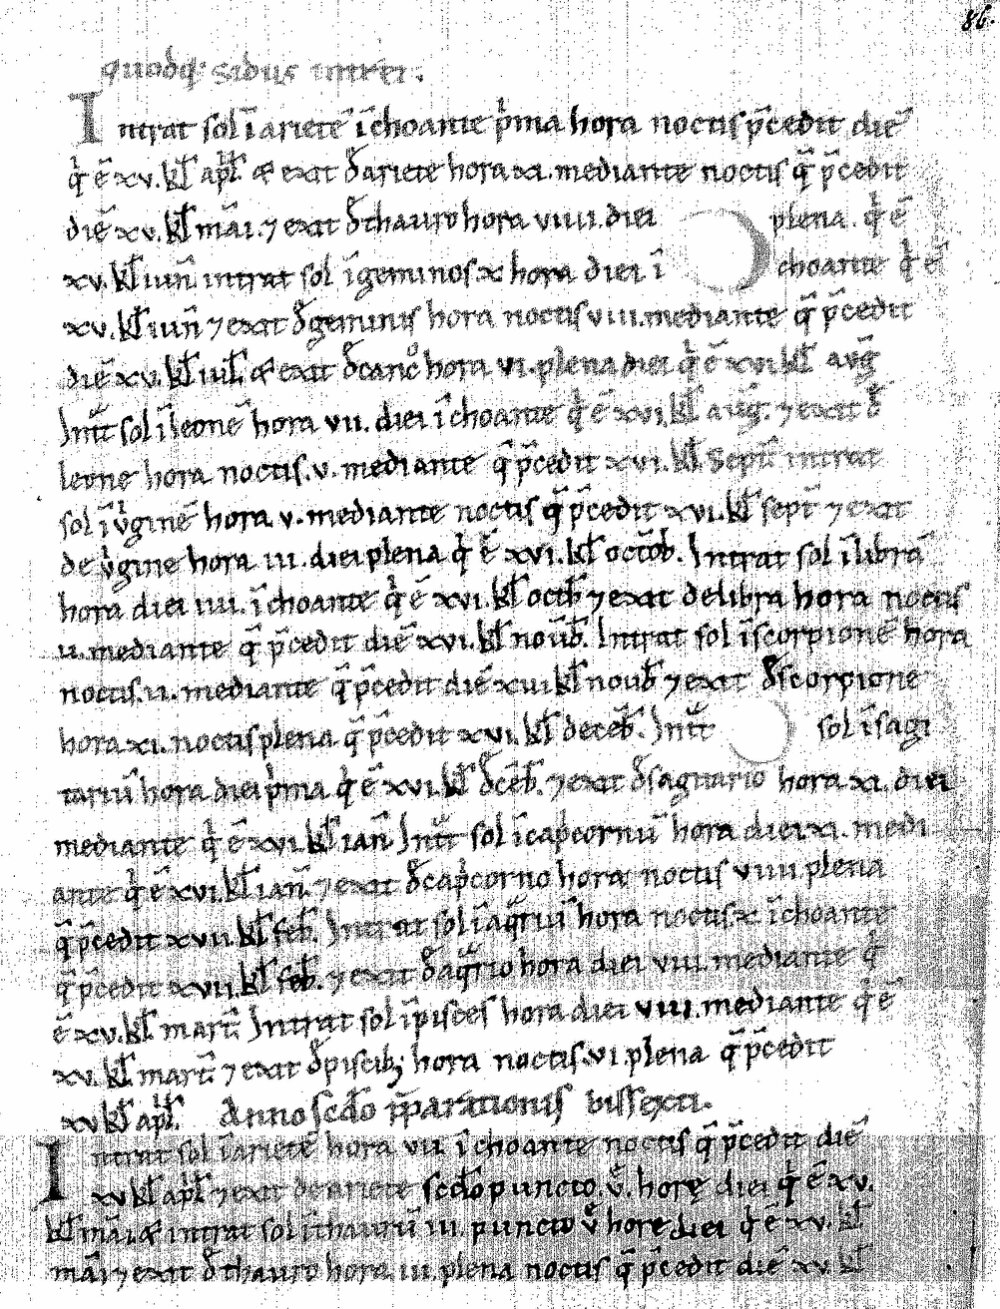 86.
quodq; sidus intret.
Intrat sol ī arietē īchoante p'ma hora noctis p̄cedit diē
q' ē xv. kł apł & exit đ ariete hora xi. mediante noctis q̄ p̄cedit
diē xv. kł mai. ⁊ exit đ thauro hora viiii. diei plena. q' ē
xv. kł iuñ intrat sol ī geminos x hora diei ī choante q' ē
xv. kł iuñ ⁊ exit đ geminis hora noctis viii. mediante q̄ p̄cedit
diē xv. kł iuł. & exit đ canc° hora vi. plena diei q' ē xvi kł aug̃
Int̃t sol ī leonē hora vii. diei īchoante q' ē xvi. kł aug̃. ⁊ exit đ
leone hora noctis. v. mediante q̄ p̄cedit xvi. kł Sept̃ intrat
sol ī v'ginē hora v. mediante noctis q̄ p̄cedit xvi. kł sept̃ ⁊ exit
de v'gine hora iii. diei plena q' ē xvi. kł octob̃. Intrat sol ī librā
hora diei iiii. īchoante q' ē xvi. kł octb̃ ⁊ exit de libra hora noctis
ii. mediante q̄ p̄cedit diē xvi. kł nou̅b̃. Intrat sol ī scorpionē hora
noctis. ii. mediante q̄ p̄cedit diē xvi kł noub̃ ⁊ exit đ scorpione
hora xi. noctis plena q̄ p̄cedit xvi. kł decēb̃. Int̃t sol ī sagi
tariū hora diei p'ma q' ē xvi. kł đcēb̃. ⁊ exit đ sagittario hora xi. diei
mediante q' ē xvi. kł iañ Int̃t sol ī cap'cornū hora diei xi. medi
ante q' ē xvi. kł iañ. ⁊ exit đ cap'corno hora noctis viiii. plena
q̄ p̄cedit xvii. kł feb̃. Intrat sol ī aq̃riū hora noctis. x. īchoante
q̄ p̄cedit xvii. kł feb̃. ⁊ exit đ aq̃rio hora diei viii. mediante q'
ē xv. kł mart̃. Intrat sol ī pisces hora diei viii. mediante q' ē
xv. kł mart̃. ⁊ exit đ piscib; hora noctis. vi. plena q̄ p̄cedit
xv kł apł. Anno scđo p̄parationis bissexti.
Intrat sol ī arietē hora vii. īchoante noctis q̄ p̄cedit diē
xv kł apł ⁊ exit de ariete scđo puncto. v̊. horę diei q' ē xv.
kł mai & intrat sol ī thaurū iii. puncto v̊ hore diei q' ē xv. kł
mai ⁊ exit đ thauro hora. iii. plena noctis q̄ p̄cedit diē xv kł